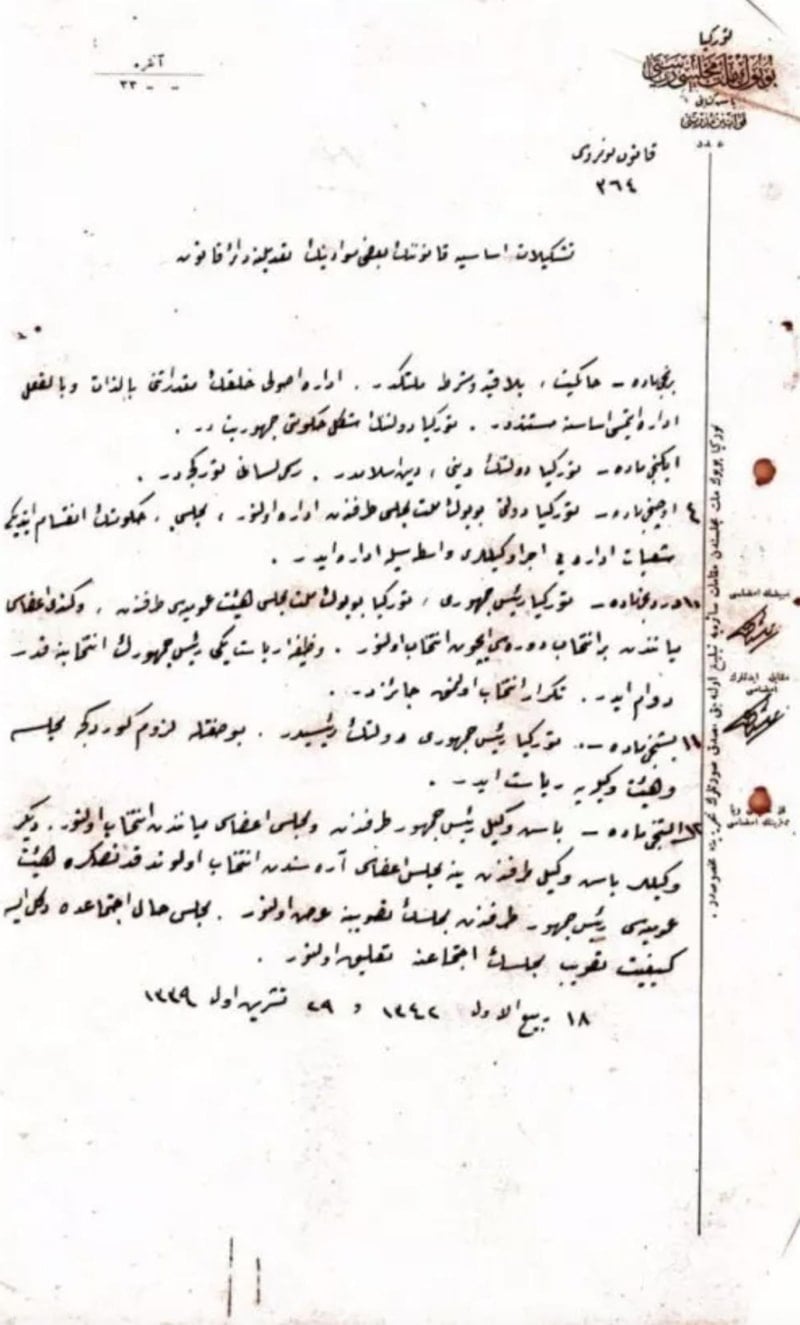 توركيا
بويوك ملت مجلسى رياستى
باش كتابتى
قوانين مديريتى
عدد
آنقره
٣٣ - -
قانون نومروسى
٣٦٤
تشكيلات اساسيه قانوننك بعضى موادينك تعديلنه دائر قانون
برنجى ماده – حاكميت، بلا قيد و شرط ملتكدر . اداره اصولى خلقك مقدراتنى بالذات وبالفعل
اداره ايتمسى اساسنه مستنددر . توركيا دولتنك شكل حكومتى جمهوريت در .
ايكنجى ماده – توركيا دولتنك دينى ، دين اسلامدر . رسمى لسانى توركجه در .
٤ اوچنجى ماده – توركيا دولتى بويوك ملت مجلسى طرفندن اداره اولنور ، مجلس ، حكومتك انقسام ايتديكى
شعبات اداره يى اجرا وكيللرى واسطه سيله اداره ايدر .
١٠ دردنجى ماده – توركيا رئيس جمهورى ، توركيا بويوك ملت مجلسى هيئت عموميه سى طرفندن ، وكندى اعضاسى
مياننده بر انتخاب دوره سى ايچون انتخاب اولنور . وظيفه رياست يكى رئيس جمهورك انتخابنه قدر
دوام ايدر . تكرار انتخاب اولنمق جائزدر .
١١ بشنجى ماده – توركيا رئيس جمهورى دولتك رئيسيدر . بو صفتله لزوم كوردكجه مجلسه
و هيئت وكيله يه رياست ايدر .
١٢ آلتنجى ماده – باش وكيل رئيس جمهور طرفندن و مجلس اعضاسى مياننده انتخاب اولنور . ديكر
وكيللر باش وكيل طرفندن ينه مجلس اعضاسى آره سندن انتخاب اولوندقدنصكره هيئت
عموميه سى رئيس جمهور طرفندن مجلسك تصويبنه عرض اولنور . مجلس حال اجتماعده دكل ايسه
كيفيت تصويب مجلسك اجتماعنه تعليق اولنور .
١٨ ربيع الاول ١٣٤٢ و ٢٩ تشرين اول ١٣٣٩